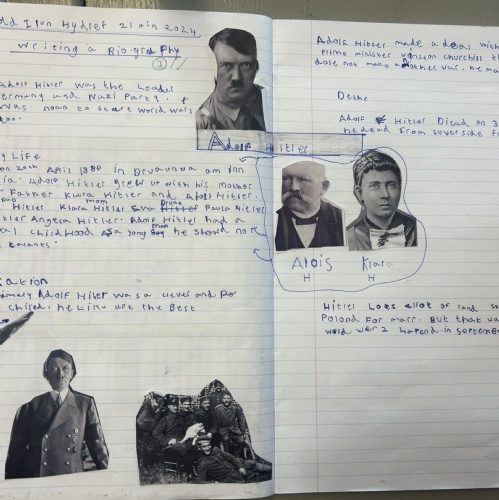 Ddd Ilun Hydref 21 ain 2024
Writing a Biography
Adolf Hitler was the Leader
ermany and Nazi Party. &
was noan to start world wars
too.
y Life
on 20th April 1889 in Bruaunua am Inn
ia. Adolf Hitler grew up with his mother
Father Klara Hitler and Alois Hitler.
Hitler Klara Hitler Eva Paula Hitler
tler Angela Hitler. Adolf Hitler had a
al childHood As a yong man he should no
talants.
cation
rimary Adolf Hitler was a clever and Po
chiled. he Like art the Best
Adolf Hitler
Alois
H
Klara
H
Adolf Hitler made a deal with
Prime minister winston churchill th
dose not make another war. he ma
Dethe
Adolf Hitler Diead on 3
he dead from suverside F
Hitler Lots allot of land so
Poland for marr. But that wa
world war 2 hapend in september